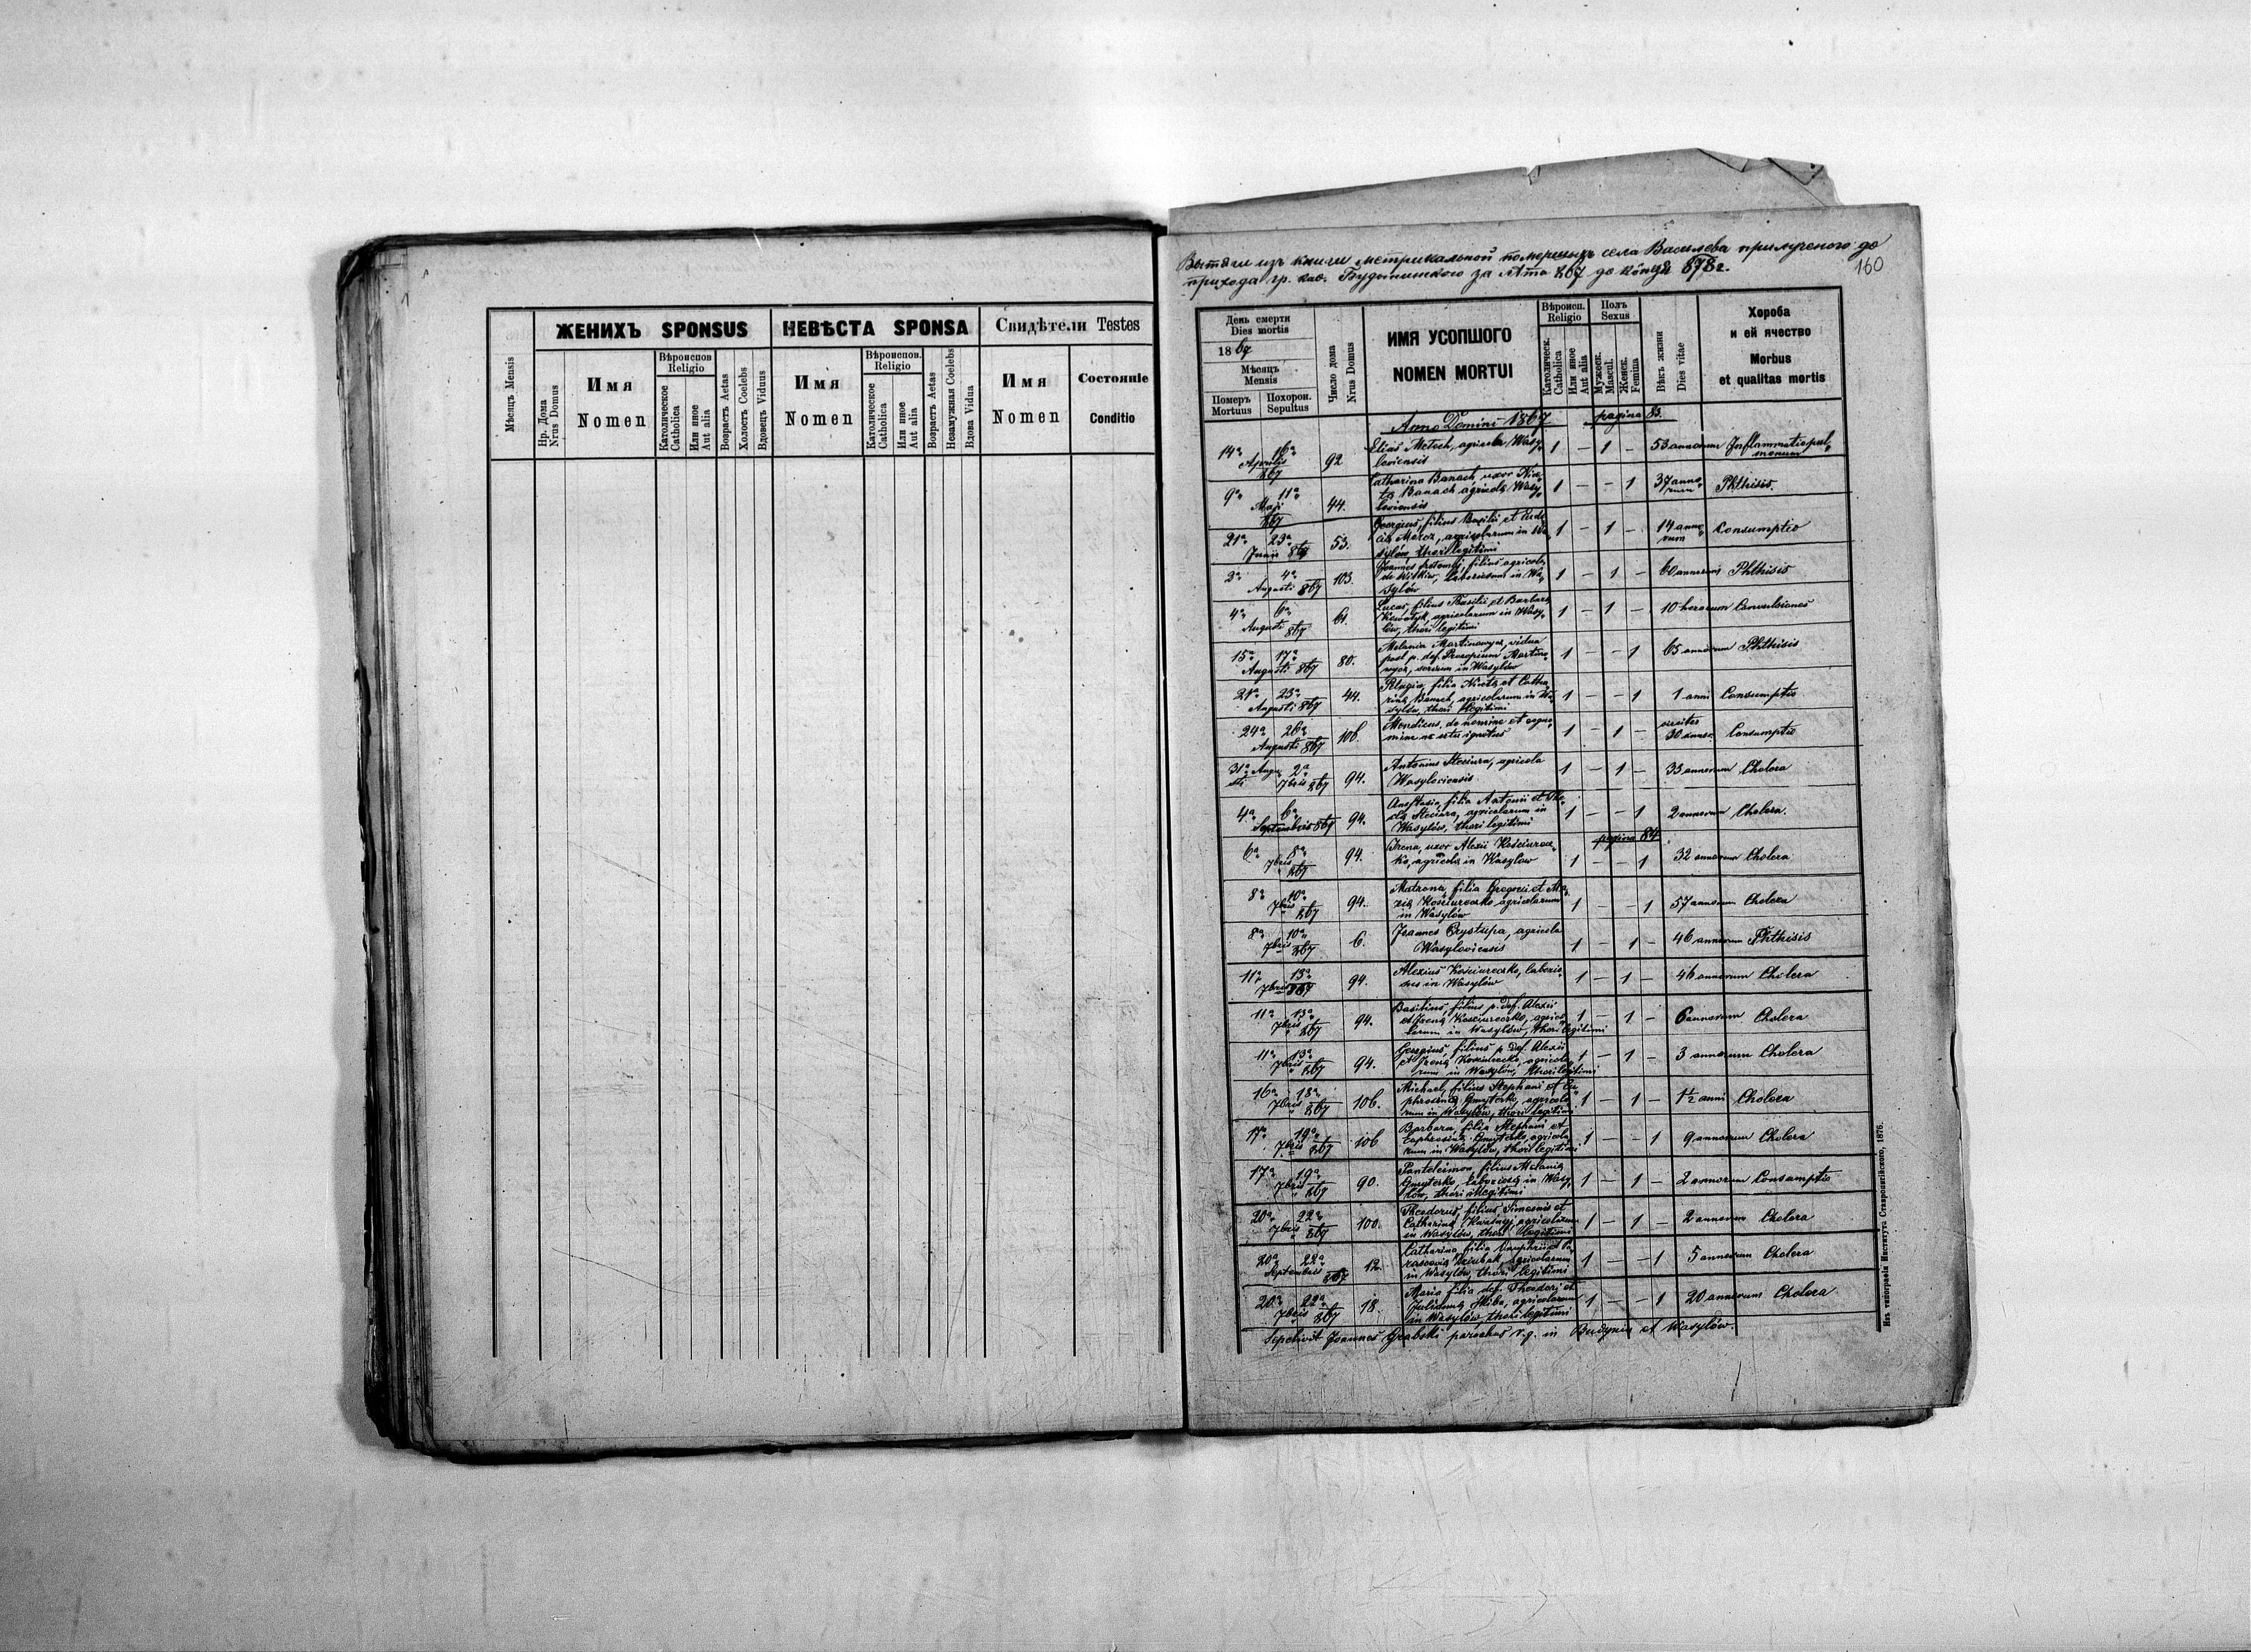 ЖЕНИХЪ SPONSUS
НЕВѢСТА SPONSA
Свидѣтели Testes
Мѣсяцъ Mensis
Нр. Дома
Nrus Domus
Имя
Nomen
Вѣроиспов
Religio
Католическое
Catholica
Или иное
Aut alia
Возрастъ Aetas
Холостъ Coelebs
Вдовецъ Viduus
Имя
Nomen
Вѣроиспов.
Religio
Католическое
Catholica
Или иное
Aut alia
Возрастъ Aetas
Незамужная Coelebs
Вдова Vidua
Имя
Nomen
Состояніе
Conditio
Вытяги изъ книги метрикальной помершихъ села Василева прилученого до
прихода гр. каѳ. Будынинского за лѣта 867 до конця 878 г.
160
День смерти
Dies mortis
1867
Мѣсяцъ
Mensis
Померъ
Mortuus
Похорон.
Sepultus
Число дома
Nrus Domus
ИМЯ УСОПШОГО
NOMEN MORTUI
Вѣроисп.
Religio
Католическ.
Catholica
Или иное
Aut alia
Полъ
Sexus
Мужеск.
Mascul.
Женск.
Femina
Вѣкъ жизни
Dies vitae
Хороба
и ей ячество
Morbus
et qualitas mortis
Anno Domini 1867 pagina 83.
14a 16a Aprilis 867 92 Elias Metech, agricola Wasy- 1 – 1 – 53 annorum Inflammatio pul-
loviensis monum
9a 11a Maji 867 44. Catharina Banach, uxor Nice- 1 – – 1 37 anno-
tae Banach agricolae Wasy- rum Phthisis.
loviensis
21a 23a Junii 867 53. Georgius, filius Basilii et Eudo- 1 – 1 – 14 anno-
ciae Meroz, agricolarum in Wa- rum Consumptio
sylów, thori legitimi
2a 4a Augusti 867 103. Joannes filius agricolae 1 – 1 – 60 annorum Phthisis
de Witków, laboriosus in Wa-
sylów
4a 6a Augusti 867 61. Lucas, filius Basilii et Barbarae 1 – 1 – 10 horarum Convulsiones
agricolarum in Wasy-
lów, thori legitimi
15a 17a Augusti 867 80. Melania Martinowycz, vidua 1 – – 1 65 annorum Phthisis
post p. def. Procopium Martino-
wycz, in Wasylów
21a 23a Augusti 867 44. Pelagia, filia Nicetae et Catha- 1 – – 1 1 anni Consumptio
rinae Banach, agricolarum in Wa-
sylów, thori legitimi
24a 26a Augusti 867 106. Mendicus, de nomine et cogno- 1 – 1 – circiter
mine ignotus 30 annor. Consumptio
31a Augu- 2a 94. Antonius Steciura, agricola 1 – 1 – 33 annorum Cholera
sti 7bris 867 Wasyloviensis
4a 6a Septembris 867 94. Anastasia, filia Antonii et The- 1 – – 1 2 annorum Cholera.
clae Steciura, agricolarum in
Wasylów, thori legitimi
pagina 84.
6a 8a 7bris 867 94. Irena, uxor Alexii Kościurec- 1 – – 1 32 annorum Cholera
ko, agricolae in Wasylow
8a 10a 7bris 867 94. Matrona, filia Gregorii et Ma- 1 – – 1 57 annorum Cholera
riae Kościureczko agricolarum
in Wasylów
8a 10a 7bris 867 6. Joannes Chrystupa, agricola 1 – 1 – 46 annorum Phthisis
Wasyloviensis
11a 13a 7bris 867 94. Alexius Kościureczko, laborio- 1 – 1 – 46 annorum Cholera
sus in Wasylów
11a 13a 7bris 867 94. Basilius, filius p. def. Alexii 1 – 1 – 6 annorum Cholera
et Irenae Kościureczko, agrico-
larum in Wasylów, thori legitimi
11a 13a 7bris 867 94. Georgius, filius p. def. Alexii 1 – 1 – 3 annorum Cholera
et Irenae Kościureczko, agricola-
rum in Wasylów, thori legitimi
16a 18a 7bris 867 106. Michael, filius Stephani et Eu- 1 – 1 – 1½ anni Cholera
phrosinae Gmyterko, agricola-
rum in Wasylów, thori legitimi
17a 19a 7bris 867 106 Barbara, filia Stephani et 1 – – 1 9 annorum Cholera
Euphrosinae Gmyterko, agricola-
rum in Wasylów, thori legitimi
17a 19a 7bris 867 90. Panteleimon, filius Melaniae 1 – 1 – 2 annorum Consumptio
Gmyterko, laboriosae in Wasy-
lów, thori illegitimi
20a 22a 7bris 867 100. Theodorus, filius Simeonis et 1 – 1 – 2 annorum Cholera
Catharinae agricolarum
in Wasylów, thori legitimi
20a 22a Septembris 867 12. Catharina, filia Onuphrii et Pa- 1 – – 1 5 annorum Cholera
rascevae Dziubak, agricolarum
in Wasylów, thori legitimi
20a 22a 7bris 867 18. Maria filia def. Theodori et 1 – – 1 20 annorum Cholera
Skiba, agricolarum
in Wasylów, thori legitimi
Sepelivit Joannes Grabski parochus r. g. in Budynin et Wasylów.
Изъ типографіи Института Ставропигійского, 1876.